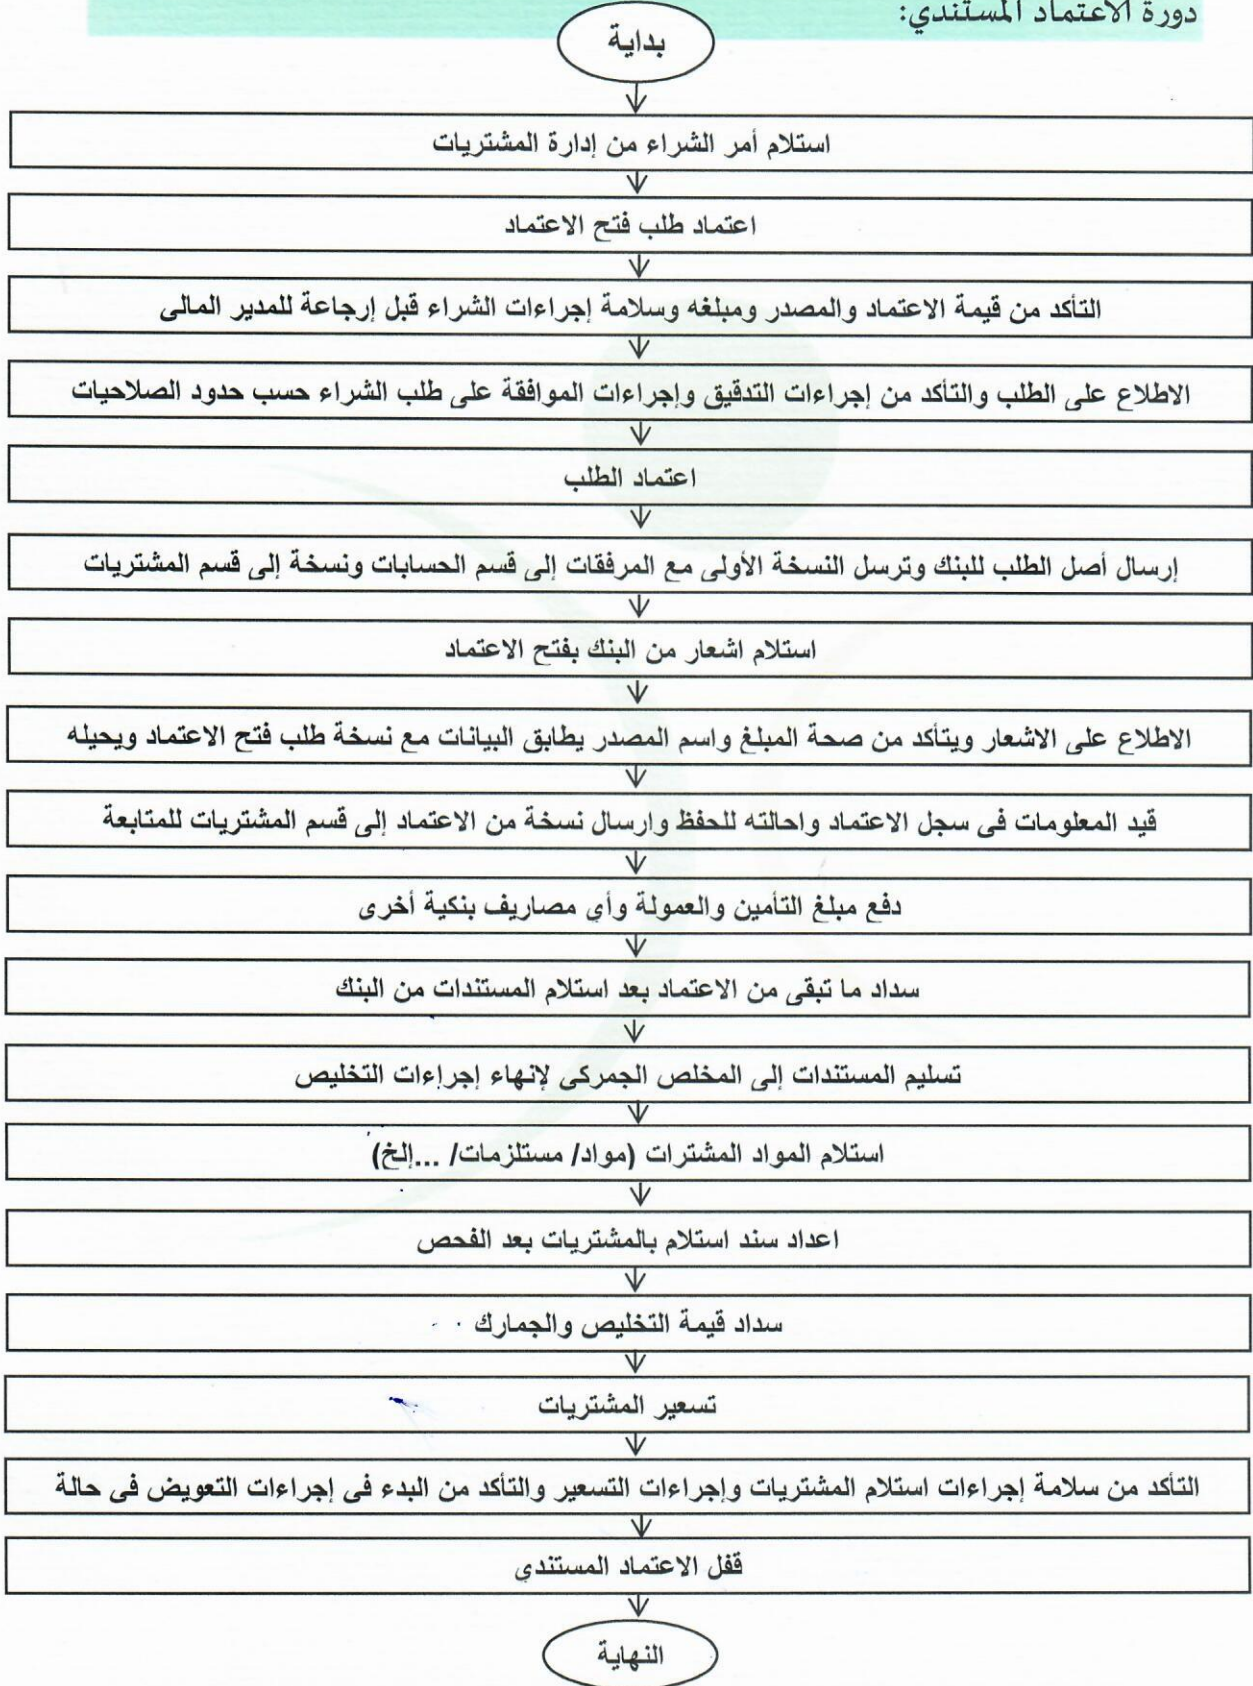 دورة الاعتماد المستندي:
بداية
استلام أمر الشراء من إدارة المشتريات
اعتماد طلب فتح الاعتماد
التأكد من قيمة الاعتماد والمصدر ومبلغه وسلامة إجراءات الشراء قبل إرجاعة للمدير المالى
الاطلاع على الطلب والتأكد من إجراءات التدقيق وإجراءات الموافقة على طلب الشراء حسب حدود الصلاحيات
اعتماد الطلب
إرسال أصل الطلب للبنك وترسل النسخة الأولى مع المرفقات إلى قسم الحسابات ونسخة إلى قسم المشتريات
استلام اشعار من البنك بفتح الاعتماد
الاطلاع على الاشعار ويتأكد من صحة المبلغ واسم المصدر يطابق البيانات مع نسخة طلب فتح الاعتماد ويحيله
قيد المعلومات فى سجل الاعتماد واحالته للحفظ وارسال نسخة من الاعتماد إلى قسم المشتريات للمتابعة
دفع مبلغ التأمين والعمولة وأي مصاريف بنكية أخرى
سداد ما تبقى من الاعتماد بعد استلام المستندات من البنك
تسليم المستندات إلى المخلص الجمركى لإنهاء إجراءات التخليص
استلام المواد المشترات (مواد/ مستلزمات/ ...إلخ)
اعداد سند استلام بالمشتريات بعد الفحص
سداد قيمة التخليص والجمارك
تسعير المشتريات
التأكد من سلامة إجراءات استلام المشتريات وإجراءات التسعير والتأكد من البدء فى إجراءات التعويض فى حالة
قفل الاعتماد المستندي
النهاية